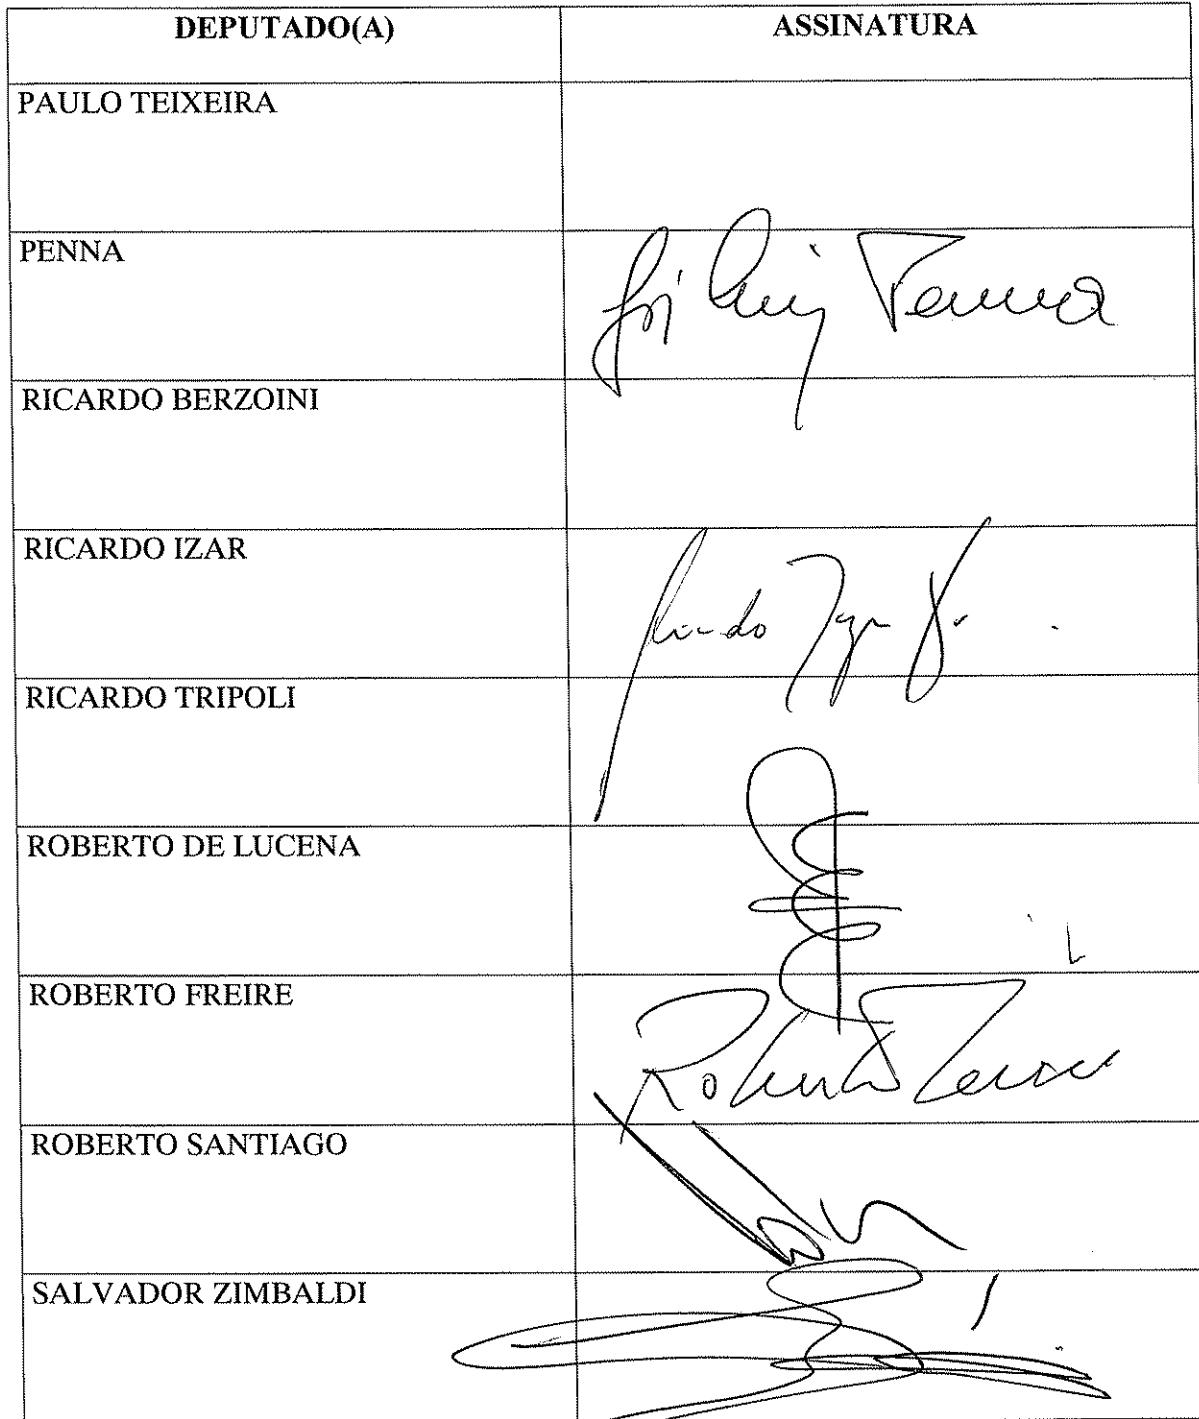 DEPUTADO(A) ASSINATURA
PAULO TEIXEIRA
PENNA
Penna
RICARDO BERZOINI
RICARDO IZAR
RICARDO TRIPOLI
ROBERTO DE LUCENA
ROBERTO FREIRE
Roberto Freire
ROBERTO SANTIAGO
SALVADOR ZIMBALDI